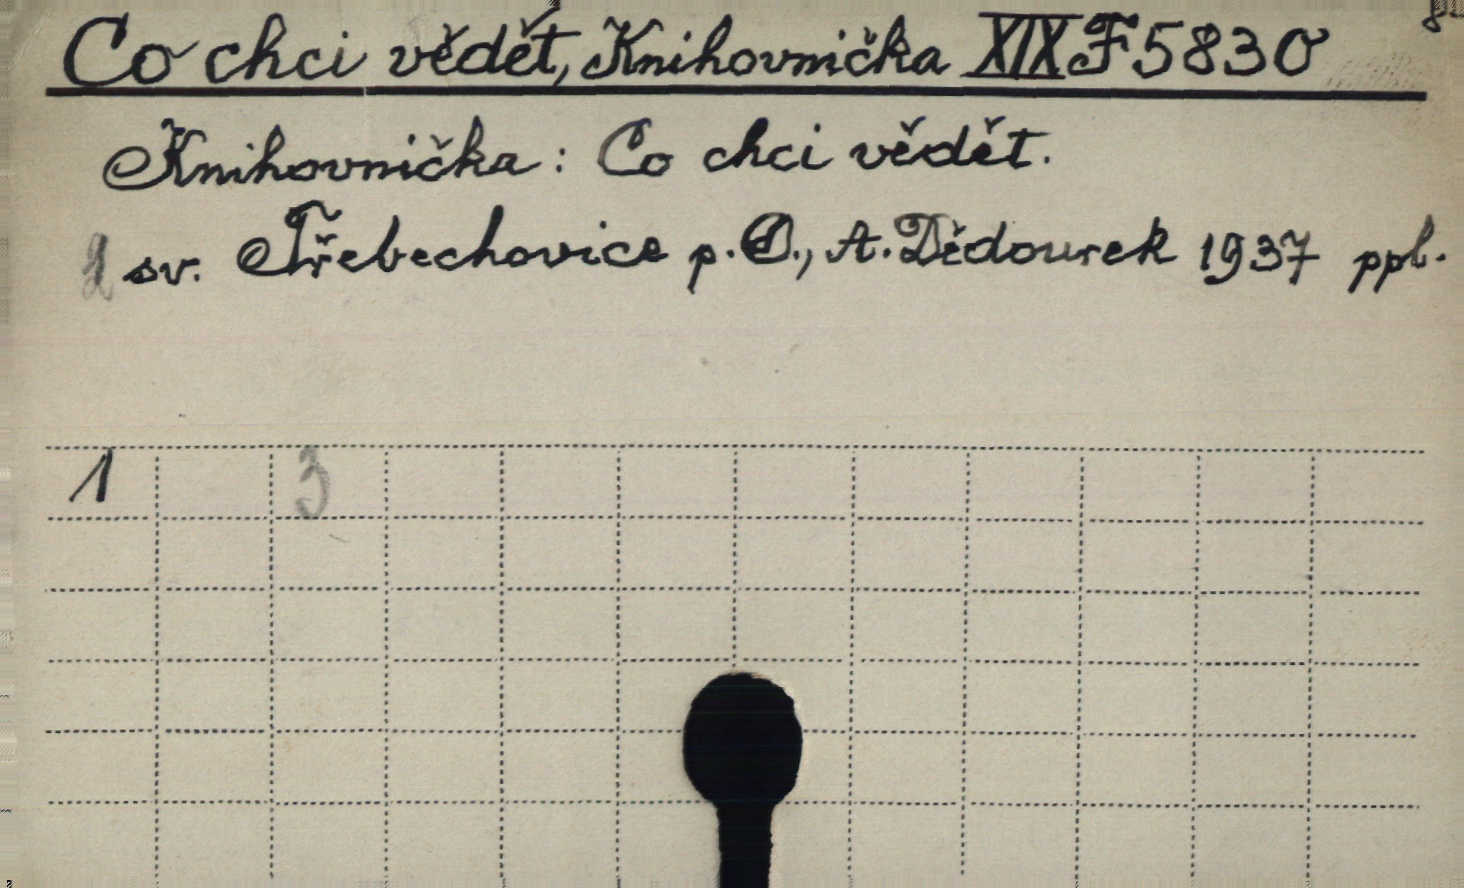 Co chci vědět, Knihovnička XIX F 5830
Knihovnička : Co chci vědět.
2 sv. Třebechovice p. O., A. Dědourek 1937 ppb.
1 3